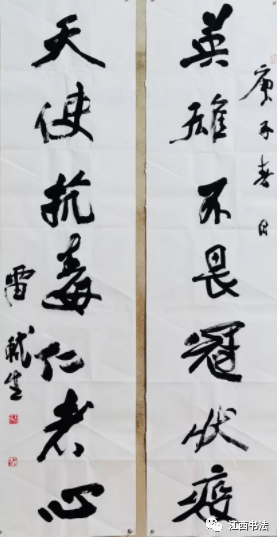 庚子春日
英雄不畏冠状疫
天使抗毒仁者心
江西书法